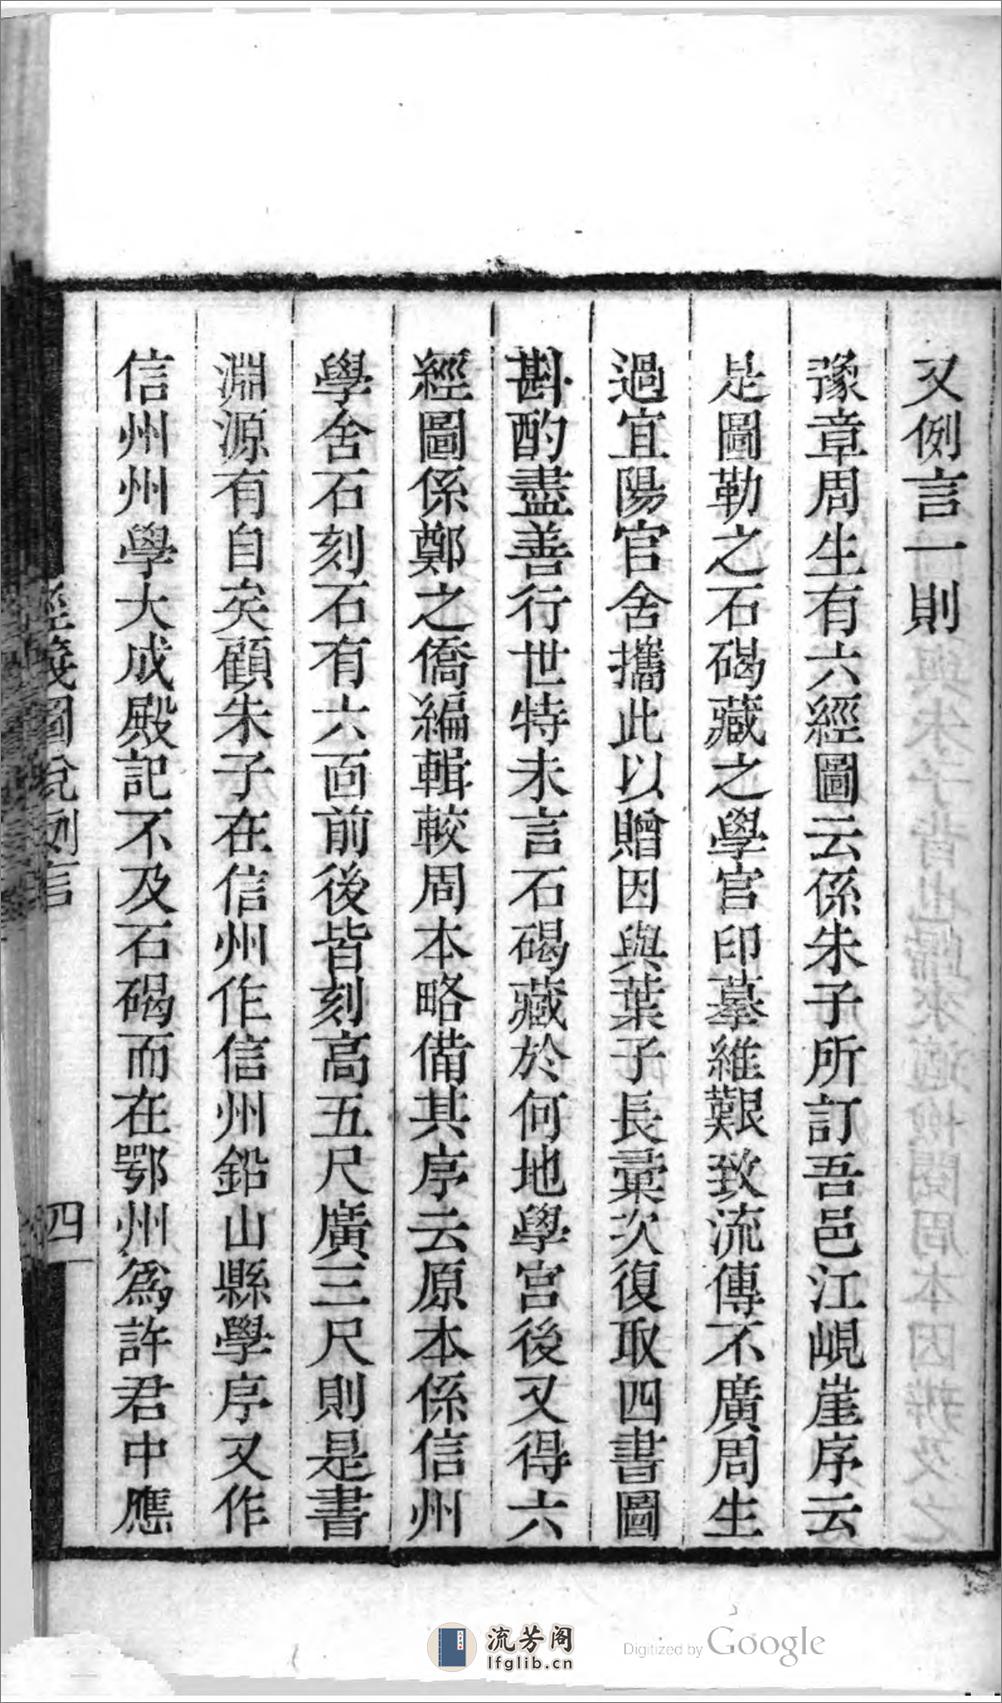 又例言一則
豫章周生有六經圖云係朱子所訂吾邑江峴崖序云
是圖勒之石碣藏之學官印摹維艱致流傳不廣周生
過宜陽官舍攜此以贈因與葉子長彙次復取四書圖
斟酌盡善行世特未言石碣藏於何地學宮後又得六
經圖係鄭之僑編輯較周本略備其序云原本係信州
學舍石刻石有六面前後皆刻高五尺廣三尺則是書
淵源有自矣顧朱子在信州作信州鉛山縣學序又作
信州州學大成殿記不及石碣而在鄂州為許君中應
經義圖說例言
四
流芳阁
lfglib.cn
Digitized by Google